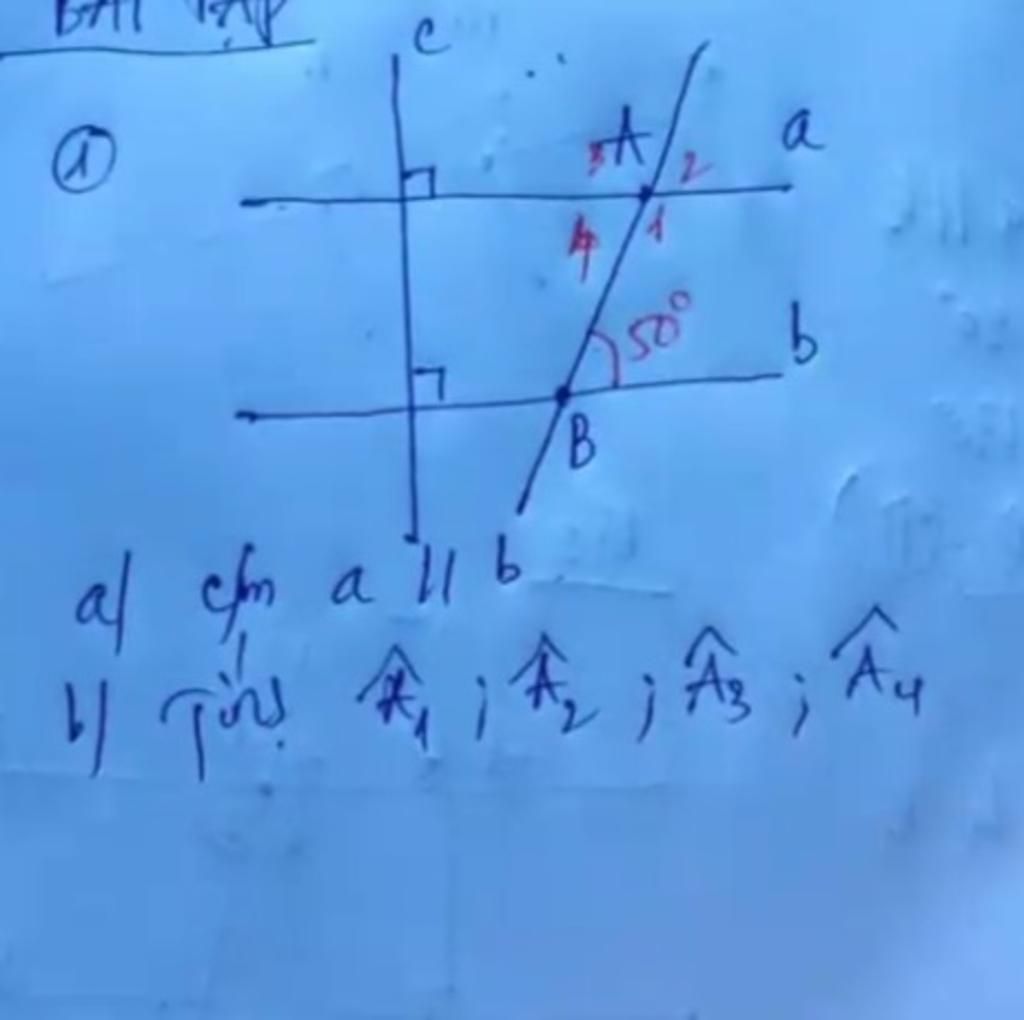 BÀI TẬP
c
①
A
a
3
2
4
1
50°
b
B
a/ c/m a // b
b/ Tính Â1 ; Â2 ; Â3 ; Â4